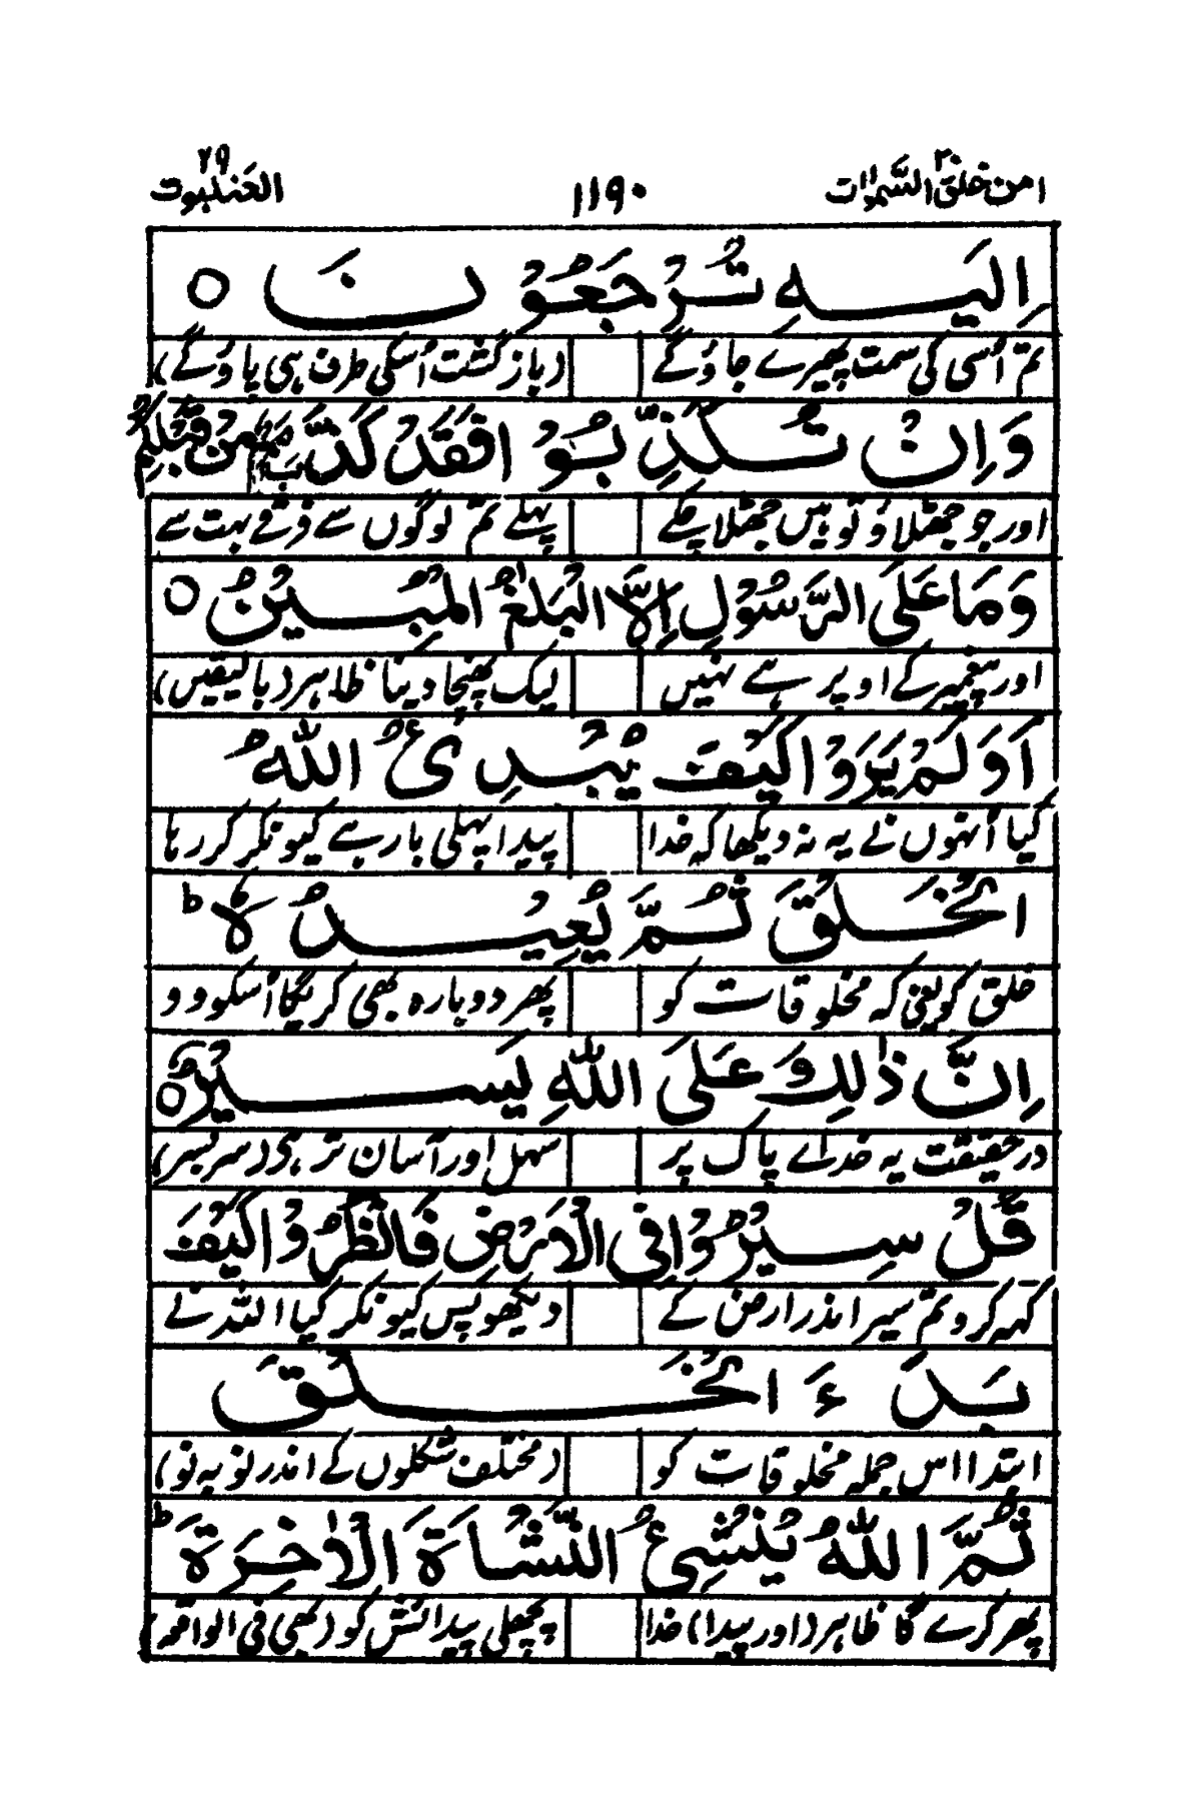 امن خلق السمٰوٰت ۲۰ ۱۱۹۰ العنکبوت ۲۹
اِلَیْہِ تُرْجَعُوْنَ ○
تم اُسی کی سمت پھیرے جاؤ گے (باز گشت اُسکی طرف ہی پاؤ گے)
وَاِنْ تُکَذِّبُوْا فَقَدْ کَذَّبَ اُمَمٌ مِّنْ قَبْلِکُمْ
اور جو جھٹلاؤ تو ہیں جھٹلا چکے پہلے تم لوگوں سے فرقے بہت سے
وَمَا عَلَی الرَّسُوْلِ اِلَّا الْبَلٰغُ الْمُبِیْنُ ○
اور پیغمبر کے اوپر ہے نہیں لیک پہنچا دینا ظاہر (بالیقیں)
اَوَلَمْ یَرَوْا کَیْفَ یُبْدِئُ اللّٰہُ
کیا اُنہوں نے یہ نہ دیکھا کہ خدا پیدا پہلی بار ہے کیونکر کر رہا
الْخَلْقَ ثُمَّ یُعِیْدُہٗ ط
خلق کو یعنی کہ مخلوقات کو پھر دوبارہ بھی کریگا اُسکو وو
اِنَّ ذٰلِکَ عَلَی اللّٰہِ یَسِیْرٌ ○
در حقیقت یہ خدائے پاک پر سہل اور آسان تر ہی (سر بسر)
قُلْ سِیْرُوْا فِی الْاَرْضِ فَانْظُرُوْا کَیْفَ
کہہ کرو تم سیر اندر ارض کے دیکھو پس کیونکر کیا اللہ نے
بَدَءَ الْخَلْقَ
ابتدا اس جملہ مخلوقات کو (مختلف شکلوں کے اندر نو بہ نو)
ثُمَّ اللّٰہُ یُنْشِئُ النَّشْاَۃَ الْاٰخِرَۃَ ط
پھر کرے گا ظاہر (اور پیدا) خدا پچھلی پیدائش کو (بھی فی الواقعہ)